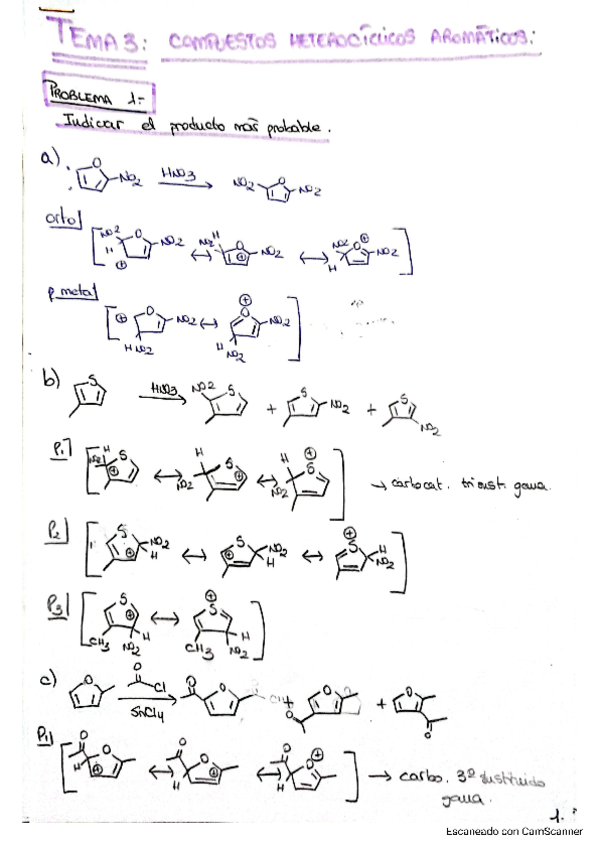 TEMA 3: COMPUESTOS HETEROCÍCLICOS AROMÁTICOS:
PROBLEMA 1.-
Indicar el producto más probable.
a) O NO2 HNO3 NO2 O NO2
orto NO2 H O NO2 ⊕ ↔ NO2 H O NO2 ⊕ ↔ NO2 H O ⊕ NO2
p meta ⊕ O NO2 H NO2 ↔ ⊕ O NO2 H NO2
b) S HNO3 NO2 S + S NO2 + S NO2
P1 NO2 H S ⊕ ↔ H NO2 S ⊕ ↔ H NO2 S ⊕ → carbocat. triust. gana.
P2 S ⊕ NO2 H ↔ S ⊕ NO2 H ↔ S ⊕ H NO2
P3 S ⊕ CH3 H NO2 ↔ ⊕ S CH3 H NO2
c) O O Cl SnCl4 O O + O O + O O
P1 O H O ⊕ ↔ O H O ⊕ ↔ O H O ⊕ → carbo. 3º sustituido
gana.
1.
Escaneado con CamScanner